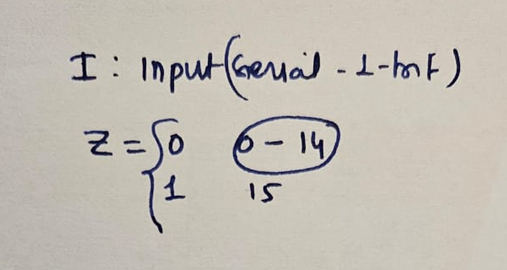 I : Input (Serial - 1-bit)
Z = { 0 0 - 14
1 15